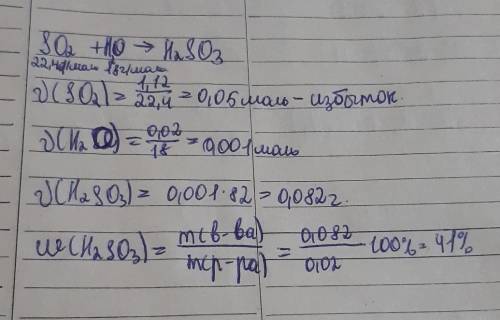 SO2 + H2O → H2SO3
22,4л/моль 18г/моль
ν(SO2) = 1,12 / 22,4 = 0,05 моль - избыток.
ν(H2O) = 0,02 / 18 = 0,001 моль
ν(H2SO3) = 0,001 · 82 = 0,082 г.
w(H2SO3) = m(в-ва) / m(р-ра) = 0,082 / 0,02 · 100% = 41%